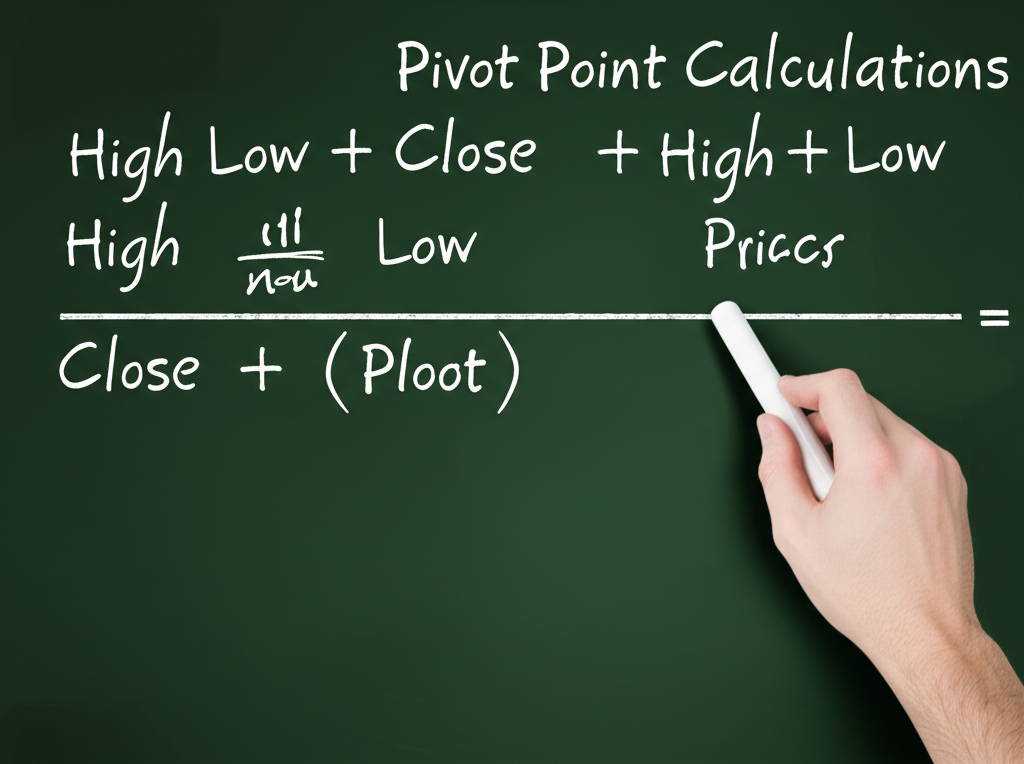 Pivot Point Calculations
High Low + Close + High + Low
High Low Priccs
=
Close + (Ploot)